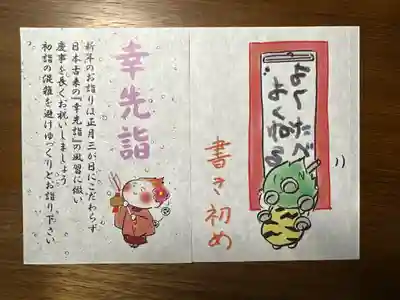 幸先詣
新年のお詣りは正月三が日にこだわらず
日本古来の『幸先詣』の風習に倣い
慶事を長くお祝いしましょう
初詣の混雑を避けゆっくりとお詣り下さい
よくたべ
よくねる
書き初め